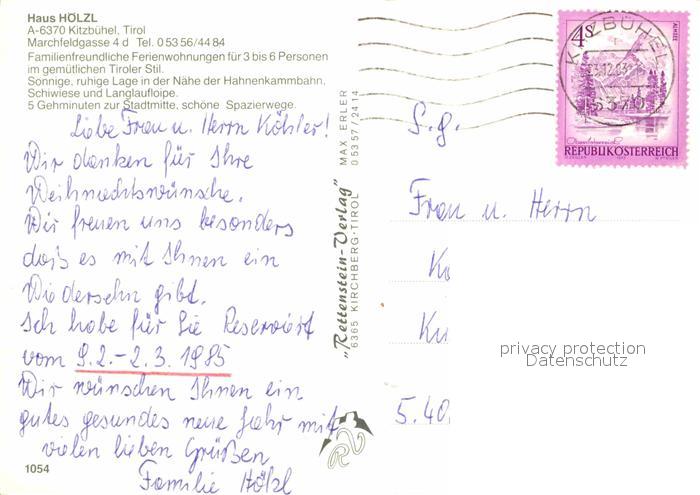 Haus HÖLZL
A-6370 Kitzbühel, Tirol
Marchfeldgasse 4 d Tel. 0 53 56/44 84
Familienfreundliche Ferienwohnungen für 3 bis 6 Personen
im gemütlichen Tiroler Stil.
Sonnige, ruhige Lage in der Nähe der Hahnenkammbahn,
Schiwiese und Langlaufloipe.
5 Gehminuten zur Stadtmitte, schöne Spazierwege.
Liebe Frau u. Herrn Köhler!
Wir danken für Ihre
Weihnachtswünsche.
Wir freuen uns besonders
daß es mit Ihnen ein
Wiedersehn gibt.
Ich habe für Sie Reserviert
vom 9.2.-2.3.1985
Wir wünschen Ihnen ein
gutes gesundes neue Jahr mit
vielen lieben Grüßen
Familie Hölzl
1054
MAX ERLER
0 53 57/24 14
"Rettenstein-Verlag"
6365 KIRCHBERG-TIROL
4s
ALMSEE
REPUBLIK ÖSTERREICH
KITZBÜHEL
6370
S.g.
Frau u. Herrn
Kö
5.40
privacy protection
Datenschutz